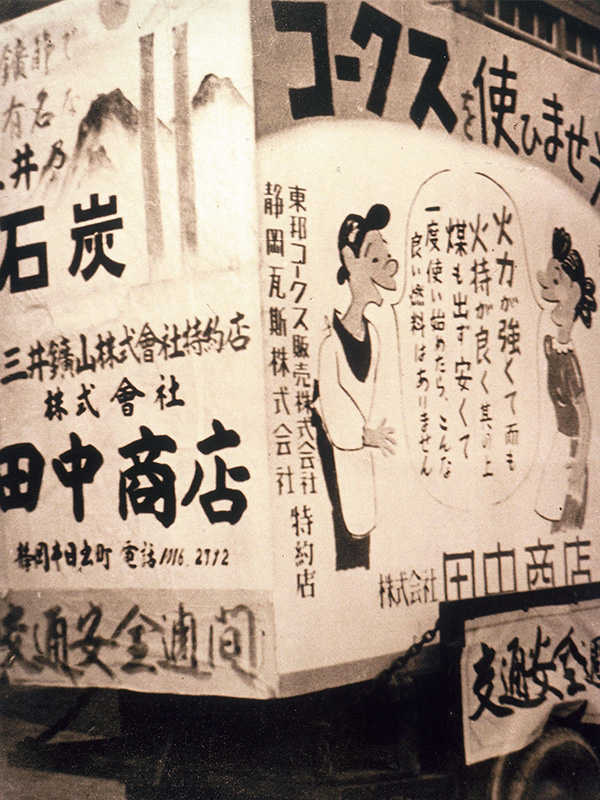 で
有名な
井乃
石炭
三井鑛山株式會社特約店
株式會社
田中商店
静岡市日出町 電話 2712
交通安全週間
コークスを使ひませ
火力が強くて而も
火持が良く其の上
煤も出ず安くて
一度使い始めたら、こんな
良い燃料はありません
東邦コークス販売株式会社
静岡瓦斯株式会社
特約店
株式会社 田中商店
交通安全週